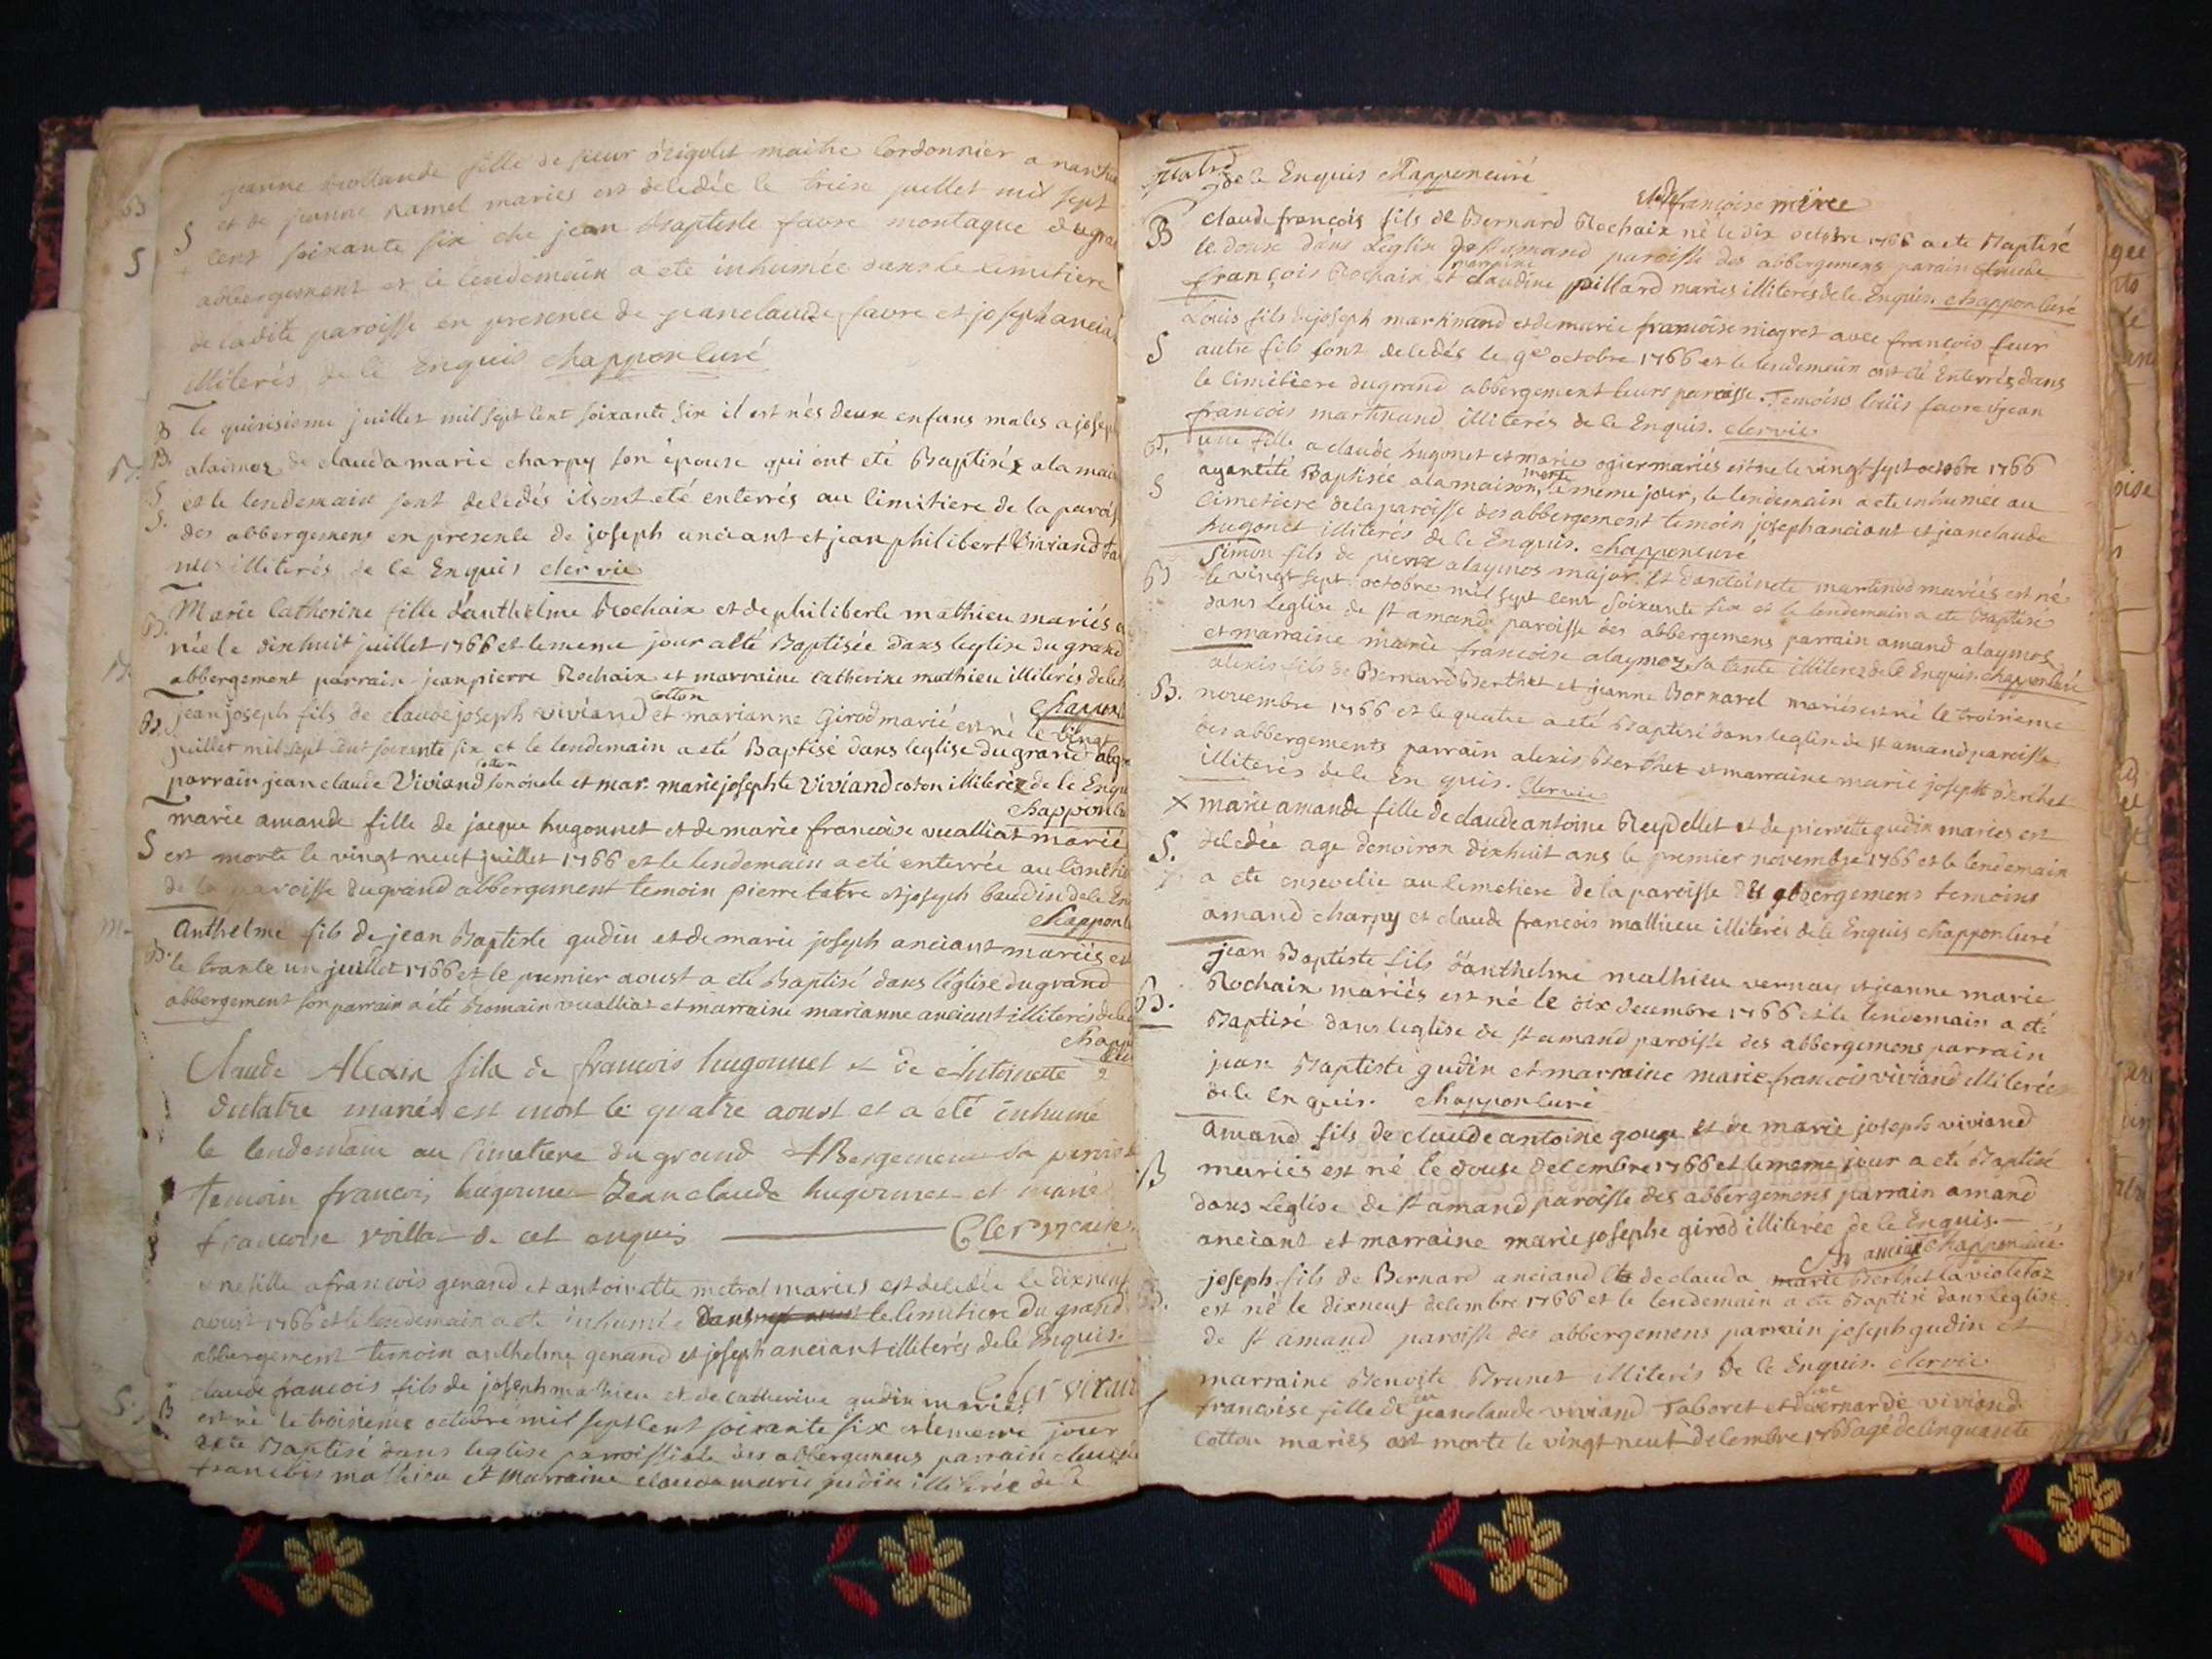 jeanne rollande fille de sieur Rigolet maitre Cordonnier a nantua
et de jeanne Ramel mariés est decedée le treise juillet mil sept
S
cent soixante six che jean Baptiste favre montagne du gra
abbergement et le lendemain a eté inhumée dans le cimitiere
de ladite paroisse en presence de jeanclaude favre et joseph ancia
illiterés de ce Enquis chappon curé
B le quinsieme juillet mil sept cent soixante six il est nés deux enfans males a josep
B. alaimoz de clauda marie charpy son épouse qui ont eté Baptiséz a la mai
S et le lendemain sont decedés ils ont eté enterrés au cimitiere de la parois
S. des abbergemens en presence de joseph anciant et jean philibert Viviand ta
illiterés de ce Enquis cler vic
B. Marie Catherine fille d'anthelme Rochaix et de philiberte mathieu mariés e
née le dixhuit juillet 1766 et le meme jour a eté Baptisée dans leglise du grand
abbergement parrain jean pierre Rochaix et marraine catherine mathieu illiterés de ce
chappon
B. jean joseph fils de claude joseph viviand cotton et marianne Girod marié est né le vingt
juillet mil sept cent soixante six et le lendemain a eté Baptisé dans leglise du grand abge
parrain jean claude Viviand cotton son oncle et mar. marie josephte Viviand coton illiteréz de ce Enqu
chappon cu
marie amande fille de jacque hugonnet et de marie francoise vualliat marié
S est morte le vingt neuf juillet 1766 et le lendemain a eté enterrée au cimitie
de la paroisse du grand abbergement temoin pierre tabre et joseph baudin de ce En
chappon c
B. Anthelme fils de jean Baptiste gudin et de marie joseph anciant mariés est
le trante un juillet 1766 et le premier aoust a eté Baptisé dans l'église du grand
abbergement son parrain a été Romain vualliat et marraine marianne anciant illiterés de ce
chapp
Claude Alexis fils de francois hugonnet et de Antoinette
dulatre mariés est mort le quatre aoust et a eté inhumé
le lendemain au Cimetiere du grand ABergement sa paroisse
temoin francois hugonnet Jean claude hugonnet et marie
francoise voillat de cet enquis Cler vicaire
ne fille a francois genand et antoinette metral mariés est decedée le dixneuf
aoust 1766 et le lendemain a eté inhumée dans le cimitiere du grand
abbergement temoin anthelme genand et joseph anciant illiterés de ce Enquis.
Cler vicair
B claude francois fils de joseph mathieu et de catherine gudin mariés
est né le troisieme octobre mil sept cent soixante six et le meme jour
a ete Baptisé dans leglise parroissiale des abbergemens parrain claude
francois mathieu et marraine clauda marie gudin illiterée de ce
de ce Enquis chappon curé
et de francoise mirce
B claude francois fils de Bernard Rochaix né le dix octobre 1766 a ete Baptisé
le douse dans Leglise de st amand paroisse des abbergemens parain claude
francois Rochaix et marraine claudine pillard mariés illiterés de ce Enquis. chappon curé
Louis fils de joseph martinand et de marie francoise niogret avec francois leur
S autre fils sont decedés le 9e octobre 1766 et le lendemain ont eté Enterrés dans
le cimitiere du grand abbergement leurs paroisse. Temoins louis favre et jean
francois martinand illiterés de ce Enquis. cler vic
B. une fille a claude hugonet et marie ogier mariés est né le vingt sept octobre 1766
S ayant été Baptisée a la maison, morte le meme jour, le lendemain a ete inhumée au
cimetiere de la paroisse des abbergement temoin joseph anciant et jean claude
hugonet illiterés de ce Enquis. chappon curé
B Simon fils de pierre alaymos major et d'antoinete martinod mariés est né
le vingt sept octobre mil sept cent soixante six et le lendemain a ete Baptisé
dans Leglise de st amand paroisse des abbergemens parrain amand alaymos
et marraine marie francoise alaymoz sa tante illiterez de ce Enquis. chappon curé
alexis fils de Bernard Berthet et jeanne Bornarel mariés est né le troisieme
B. novembre 1766 et le quatre a eté Baptisé dans leglise de st amand paroisse
des abbergements parrain alexis Berthet et marraine marie joseph Berthet
illiterés de ce En quis. Cler vic
X marie amande fille de claude antoine Reydellet et de pierrette gudin mariés est
S. decedée age denviron dixhuit ans le premier novembre 1766 et le lendemain
a ete ensevelie au cimetiere de la paroisse des abbergemens temoins
amand charpy et claude francois mathieu illiterés de ce Enquis chappon curé
jean Baptiste fils d'anthelme mathieu vernay et jeanne marie
B. Rochaix mariés est né le dix decembre 1766 et le lendemain a eté
Baptisé dans leglise de st amand paroisse des abbergemens parrain
jean Baptiste gudin et marraine marie francois viviand illiterée
de ce Enquis. chappon curé
amand fils de claude antoine gouge et de marie joseph viviand
B mariés est né le douse decembre 1766 et le meme jour a eté Baptisé
dans Leglise de st amand paroisse des abbergemens parrain amand
anciant et marraine marie josephe girod illiterée de ce Enquis.
chappon curé
B. joseph fils de Bernard anciand et de clauda marie Berthet la violetaz
est né le dixneuf decembre 1766 et le lendemain a ete Baptisé dans Leglise
de st amand paroisse des abbergemens parrain joseph gudin et
marraine Benoite Brunet illiterés de ce Enquis. cler vic
francoise fille de feu jeanclaude viviand Taboret et de Bernarde viviand
cotton mariés est morte le vingt neuf decembre 1766 agé de cinquante